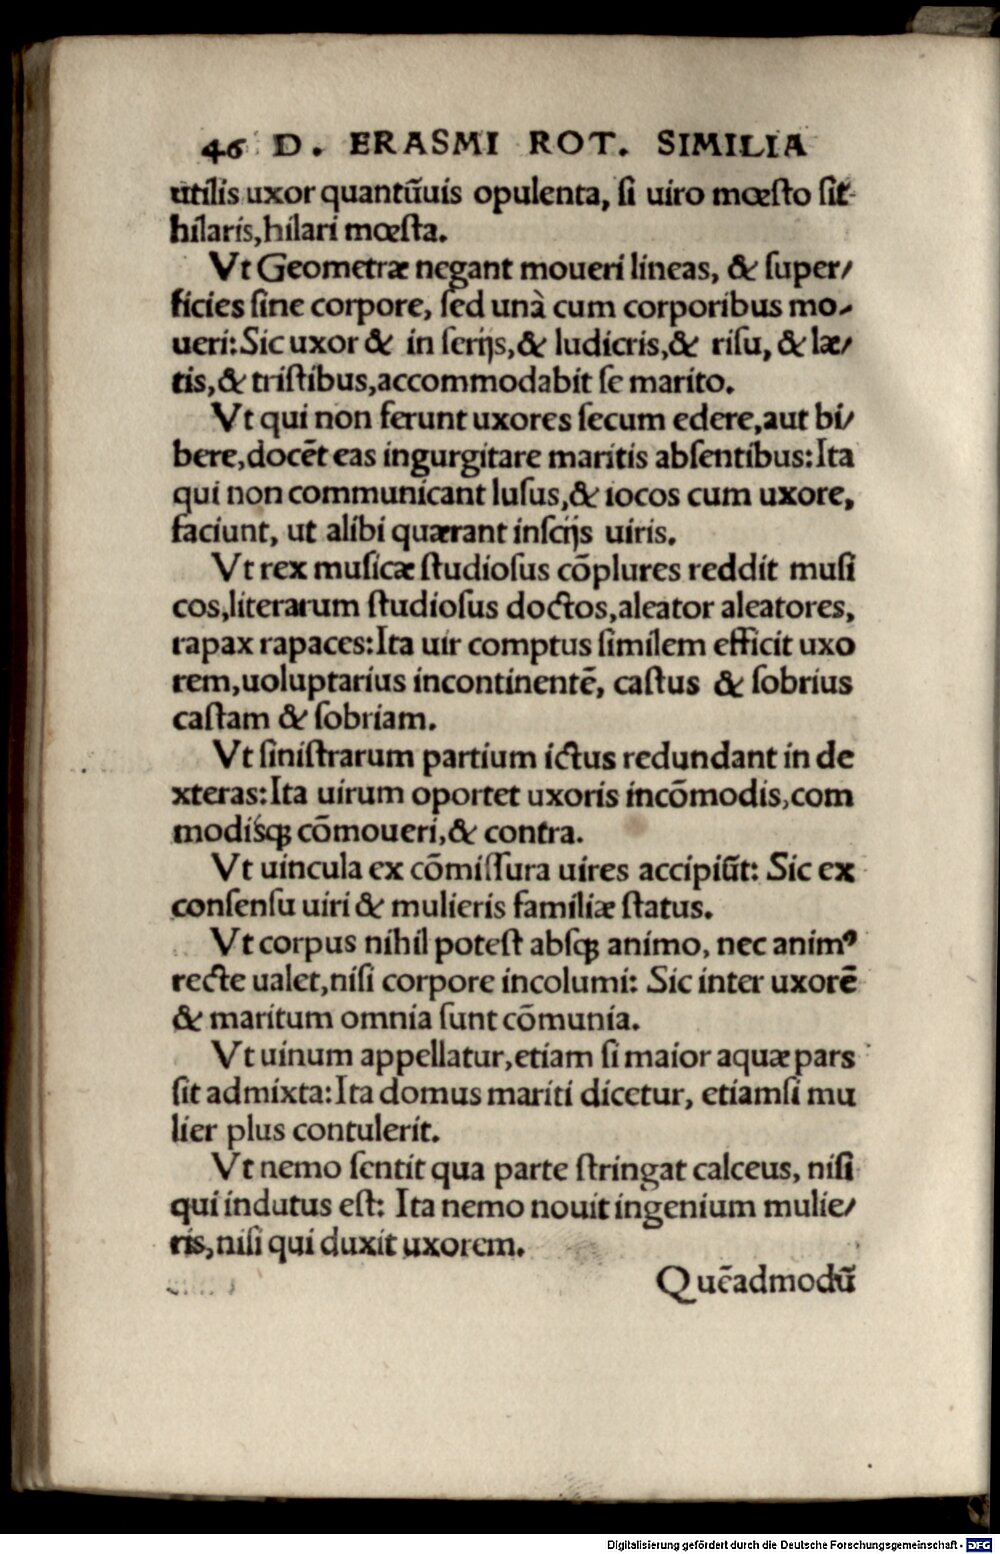 46 D. ERASMI ROT. SIMILIA
utilis uxor quantūuis opulenta, ſi uiro mœſto ſit
hilaris,hilari mœſta.
Vt Geometræ negant moueri lineas, & ſuper/
ficies ſine corpore, ſed unà cum corporibus mo-
ueri:Sic uxor & in ſerijs,& ludicris,& riſu, & læ/
tis,& triſtibus,accommodabit ſe marito.
Vt qui non ferunt uxores ſecum edere,aut bi/
bere,docēt eas ingurgitare maritis abſentibus:Ita
qui non communicant luſus,& iocos cum uxore,
faciunt, ut alibi quærant inſcijs uiris.
Vt rex muſicæ ſtudioſus cōplures reddit muſi
cos,literarum ſtudioſus doctos,aleator aleatores,
rapax rapaces:Ita uir comptus ſimilem efficit uxo
rem,uoluptarius incontinentē, caſtus & ſobrius
caſtam & ſobriam.
Vt ſiniſtrarum partium ictus redundant in de
xteras:Ita uirum oportet uxoris incōmodis,com
modisꝙ cōmoueri,& contra.
Vt uincula ex cōmiſſura uires accipiūt: Sic ex
conſenſu uiri & mulieris familiæ ſtatus.
Vt corpus nihil poteſt abſꝙ animo, nec animꝰ
recte ualet,niſi corpore incolumi: Sic inter uxorē
& maritum omnia ſunt cōmunia.
Vt uinum appellatur,etiam ſi maior aquæ pars
ſit admixta:Ita domus mariti dicetur, etiamſi mu
lier plus contulerit.
Vt nemo ſentit qua parte ſtringat calceus, niſi
qui indutus eſt: Ita nemo nouit ingenium mulie/
ris,niſi qui duxit uxorem.
Quēadmodū
Digitalisierung gefördert durch die Deutsche Forschungsgemeinschaft - DFG